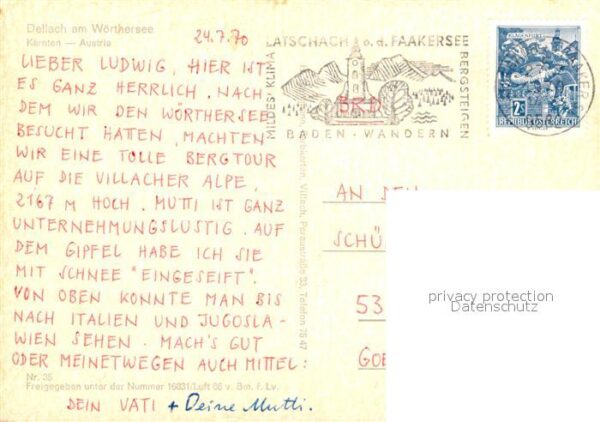 Dellach am Wörthersee
Kärnten — Austria
24.7.70
LIEBER LUDWIG, HIER IST
ES GANZ HERRLICH. NACH-
DEM WIR DEN WÖRTHERSEE
BESUCHT HATTEN, MACHTEN
WIR EINE TOLLE BERGTOUR
AUF DIE VILLACHER ALPE,
2167 M HOCH. MUTTI IST GANZ
UNTERNEHMUNGSLUSTIG. AUF
DEM GIPFEL HABE ICH SIE
MIT SCHNEE "EINGESEIFT".
VON OBEN KONNTE MAN BIS
NACH ITALIEN UND JUGOSLA-
WIEN SEHEN. MACH'S GUT
ODER MEINETWEGEN AUCH MITTEL:
Nr. 35
Freigegeben unter der Nummer 16831/Luft 66 v. Bm. f. Lv.
DEIN VATI + Deine Mutti.
Villach, Peraustraße 33, Telefon 75 47
LATSCHACH o.d. FAAKERSEE
MILDES KLIMA
BERGSTEIGEN
BADEN - WANDERN
BRD
2S
REPUBLIK ÖSTERREICH
AN DEN
SCHÜ
53
GOE
privacy protection
Datenschutz